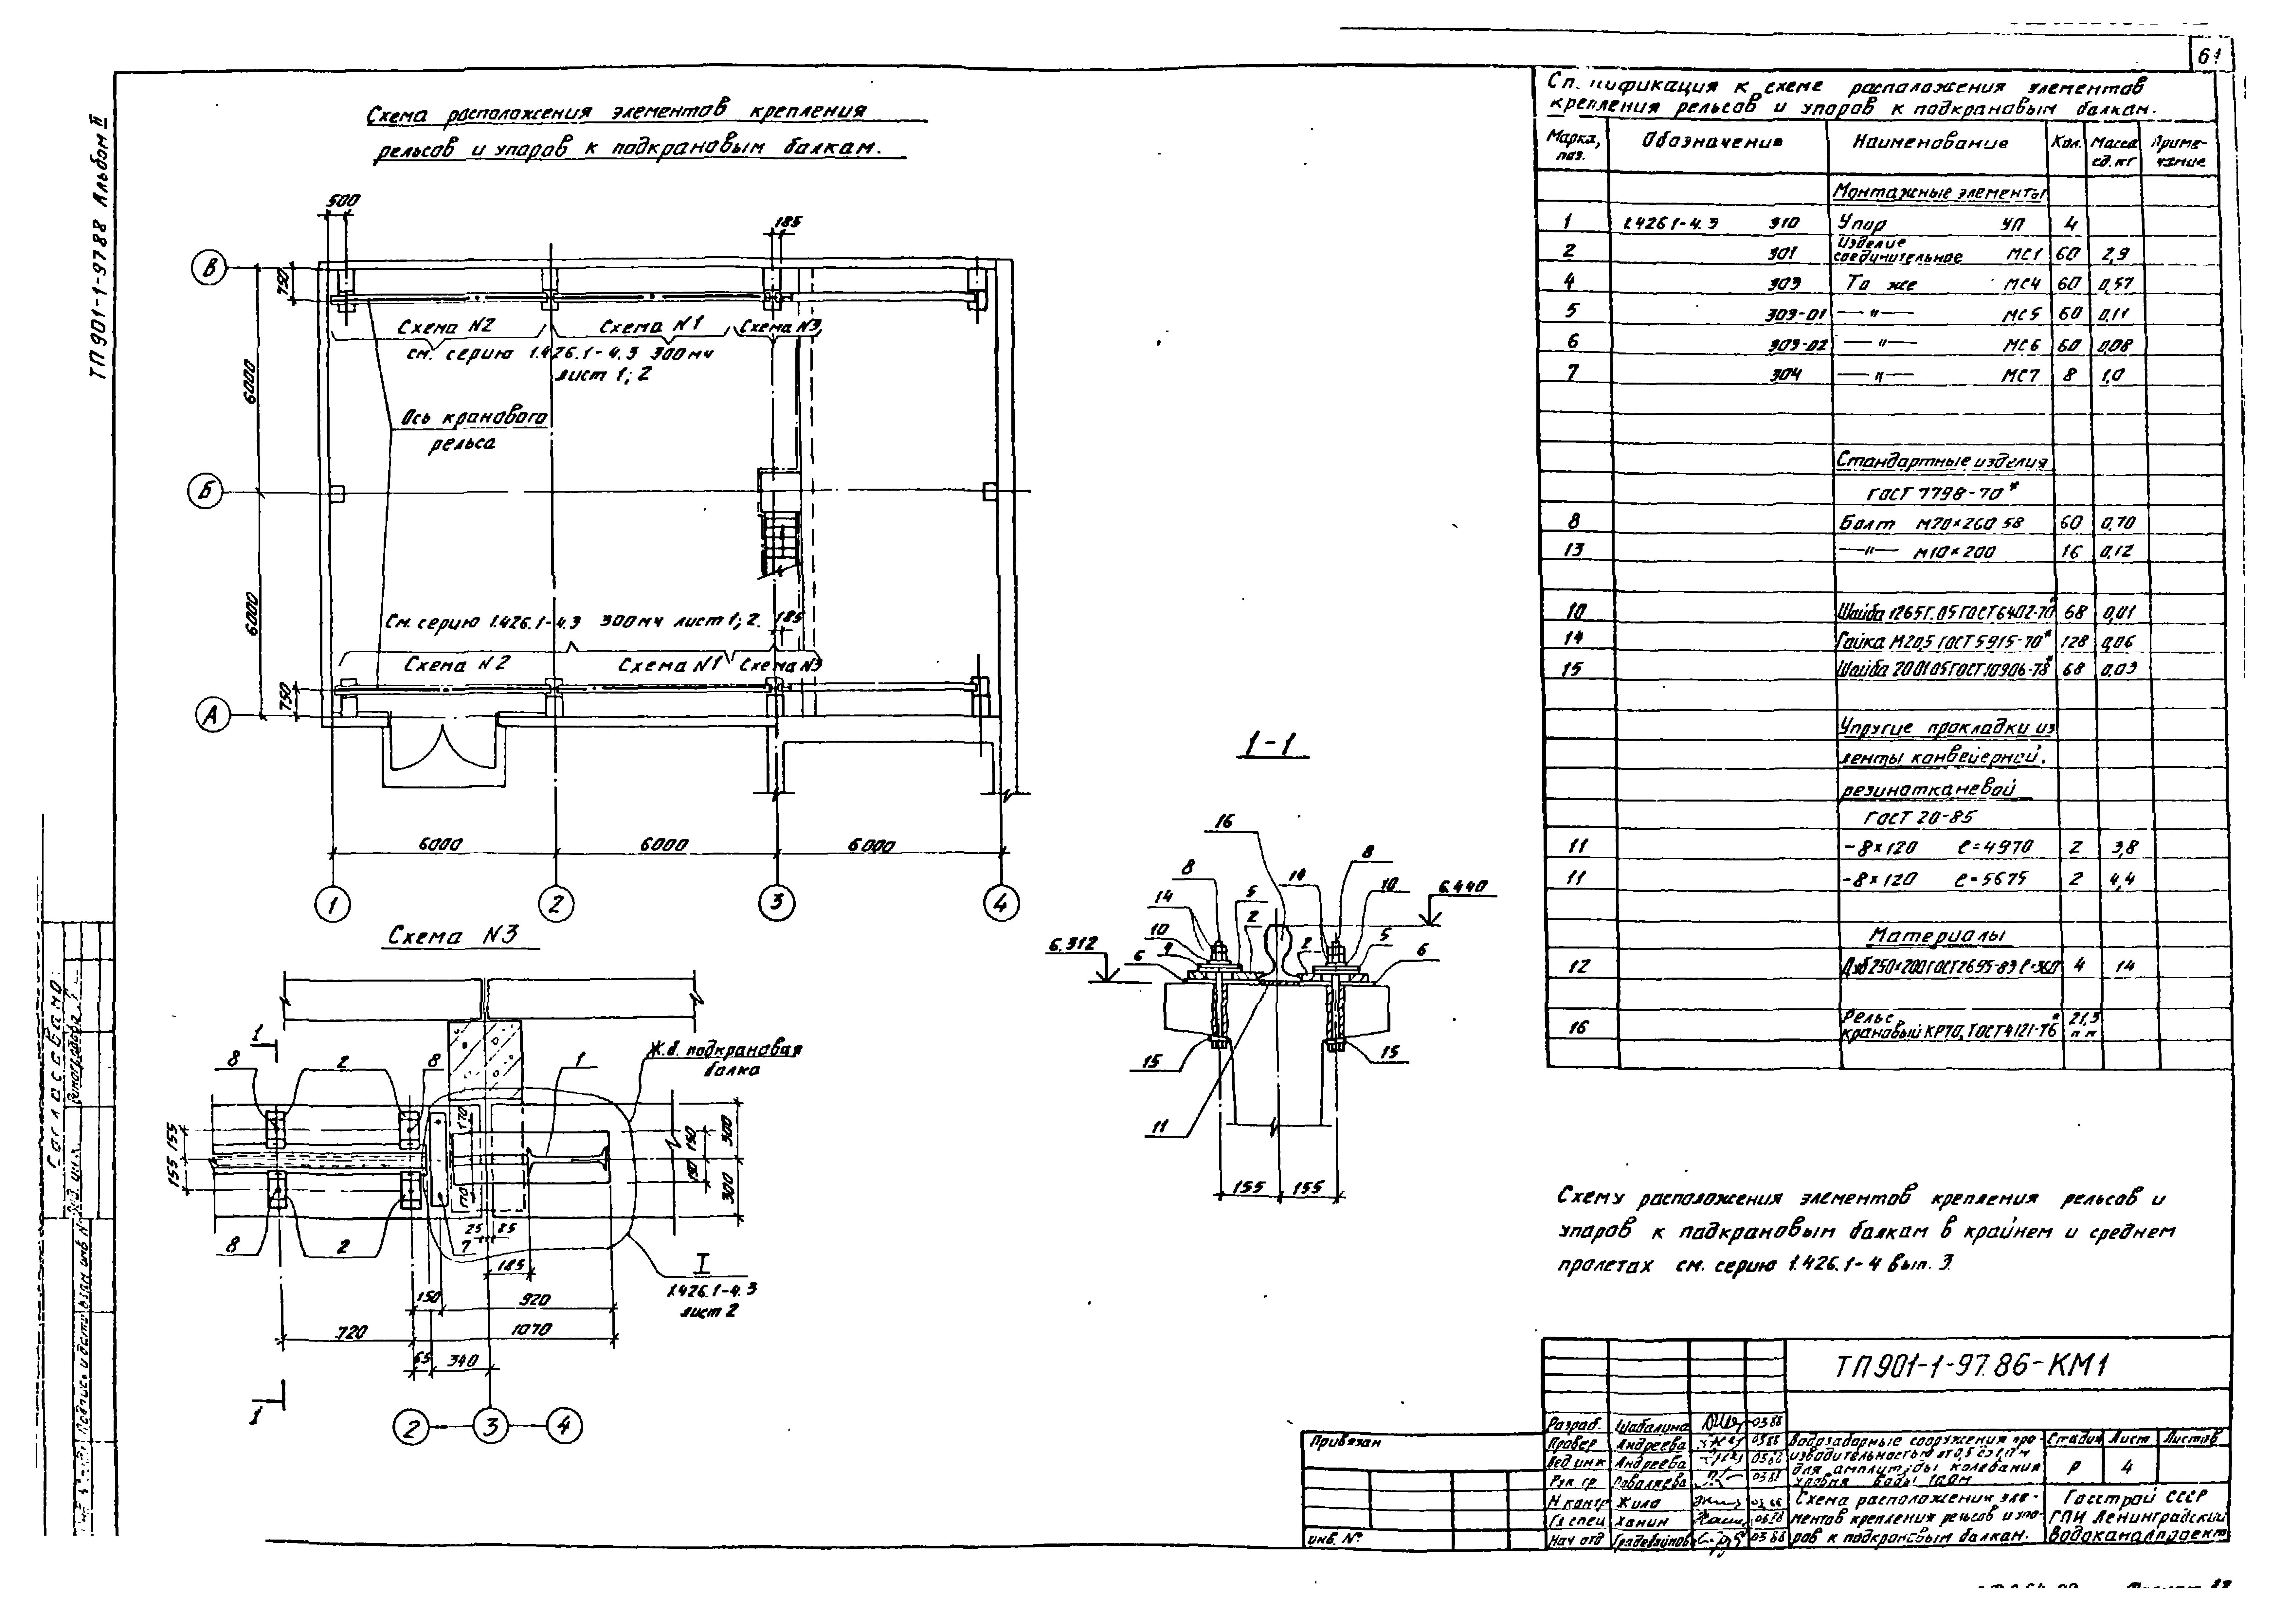 61
ТП 901-1-97.88 Альбом II
Схема расположения элементов крепления
рельсов и упоров к подкрановым балкам.
500
185
В
750
Схема N2
Схема N1
Схема N3
см. серию 1.426.1-4.3 300мч
лист 1; 2
6000
Ось кранового
рельса
Б
6000
См. серию 1.426.1-4.3 300мч лист 1; 2.
185
Схема N2
Схема N1
Схема N3
750
А
6000
6000
6000
1
2
3
4
Схема N3
Ж.б. подкрановая
балка
1
8
2
8
1
155
155
170
170
150
150
300
300
25
25
8
2
7
185
I
1.426.1-4.3
лист 2
150
920
720
1070
65
340
1
2
3
4
1-1
16
8
8
14
14
10
10
5
5
2
2
9
6
6
6.312
6.440
15
15
11
155
155
Спецификация к схеме расположения элементов
крепления рельсов и упоров к подкрановым балкам.
Марка, поз. Обозначение Наименование Кол. Масса ед. кг Примечание
Монтажные элементы
1 1.426.1-4.3 310 Упор УП 4
2 301 Изделие соединительное МС1 60 2,9
4 303 То же МС4 60 0,57
5 303-01 —"— МС5 60 0,11
6 303-02 —"— МС6 60 0,08
7 304 —"— МС7 8 1,0
Стандартные изделия
ГОСТ 7798-70*
8 Болт М20×260 58 60 0,70
13 —"— М10×200 16 0,12
10 Шайба 12 65Г.05 ГОСТ 6402-70* 68 0,01
14 Гайка М20,5 ГОСТ 5915-70* 128 0,06
15 Шайба 20.01.05 ГОСТ 10906-78* 68 0,03
Упругие прокладки из
ленты конвейерной.
резинотканевой
ГОСТ 20-85
11 -8×120 ℓ=4970 2 3,8
11 -8×120 ℓ=5675 2 4,4
Материалы
12 Дуб 250×200 ГОСТ 2695-83 ℓ=360 4 14
16 Рельс крановый КР70, ГОСТ 4121-76* 21,5 п м
Схему расположения элементов крепления рельсов и
упоров к подкрановым балкам в крайнем и среднем
пролетах см. серию 1.426.1-4 вып. 3.
ТП 901-1-97.86-КМ1
Разраб. Шабалина 03 86
Провер Андреева 03 86
Вед инж Андреева 03 86
Рук гр Поваляева 03 86
Н контр Жила 03 86
Гл спец Ханин
Нач отд 03 86
Водозаборные сооружения про-
изводительностью
для амплитуды колебания
уровня воды
Стадия Лист Листов
Р 4
Схема расположения эле-
ментов крепления рельсов и упо-
ров к подкрановым балкам.
Госстрой СССР
ГПИ Ленинградский
Водоканалпроект
Привязан
инв. №
Согласовано: